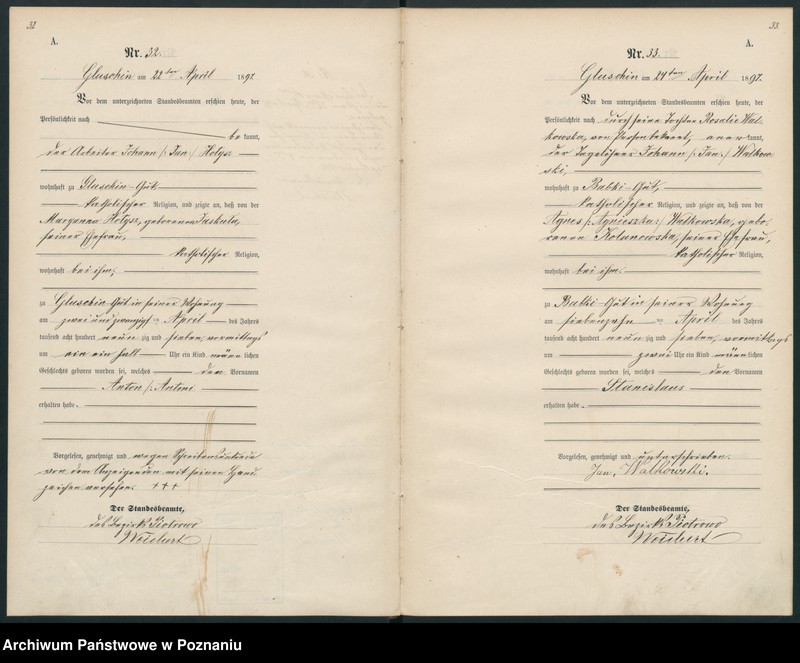 32
A.
Nr. 32.
Gluschin am 22ten April 1897.
Vor dem unterzeichneten Standesbeamten erschien heute, der
Persönlichkeit nach
bekannt,
der Arbeiter Johann /: Jan :/
wohnhaft zu Gluschin-Gut
katholischer Religion, und zeigte an, daß von der
Maryanna geborenen
seiner Ehefrau,
katholischer Religion,
wohnhaft bei ihm,
zu Gluschin-Gut in seiner Wohnung
am zwei und zwanzigsten April des Jahres
tausend acht hundert neunzig und sieben, vormittags
um ein ein halb Uhr ein Kind männlichen
Geschlechts geboren worden sei, welches den Vornamen
Anton /: Antoni
erhalten habe.
Vorgelesen, genehmigt und wegen
von dem Anzeigenden mit seinem Hand
zeichen versehen. +++
Der Standesbeamte,
des Bezirks Piotrowo
33
A.
Nr. 33.
Gluschin am 24ten April 1897.
Vor dem unterzeichneten Standesbeamten erschien heute, der
Persönlichkeit nach durch seine Tochter Rosalie Wal-
kowska, von Person bekannt, anerkannt,
der Tagelöhner Johann /: Jan :/ Walkow-
ski,
wohnhaft zu Babki-Gut,
katholischer Religion, und zeigte an, daß von der
Agnes /: Agnieszka :/ Walkowska, gebo-
renen Kolanowska, seiner Ehefrau,
katholischer Religion,
wohnhaft bei ihm.
zu Babki-Gut in seiner Wohnung
am siebenzehnten April des Jahres
tausend acht hundert neunzig und sieben, vormittags
um zwei Uhr ein Kind männlichen
Geschlechts geboren worden sei, welches den Vornamen
Stanislaus
erhalten habe.
Vorgelesen, genehmigt und unterschrieben.
Jan, Walkowski.
Der Standesbeamte,
des Bezirks Piotrowo
Archiwum Państwowe w Poznaniu